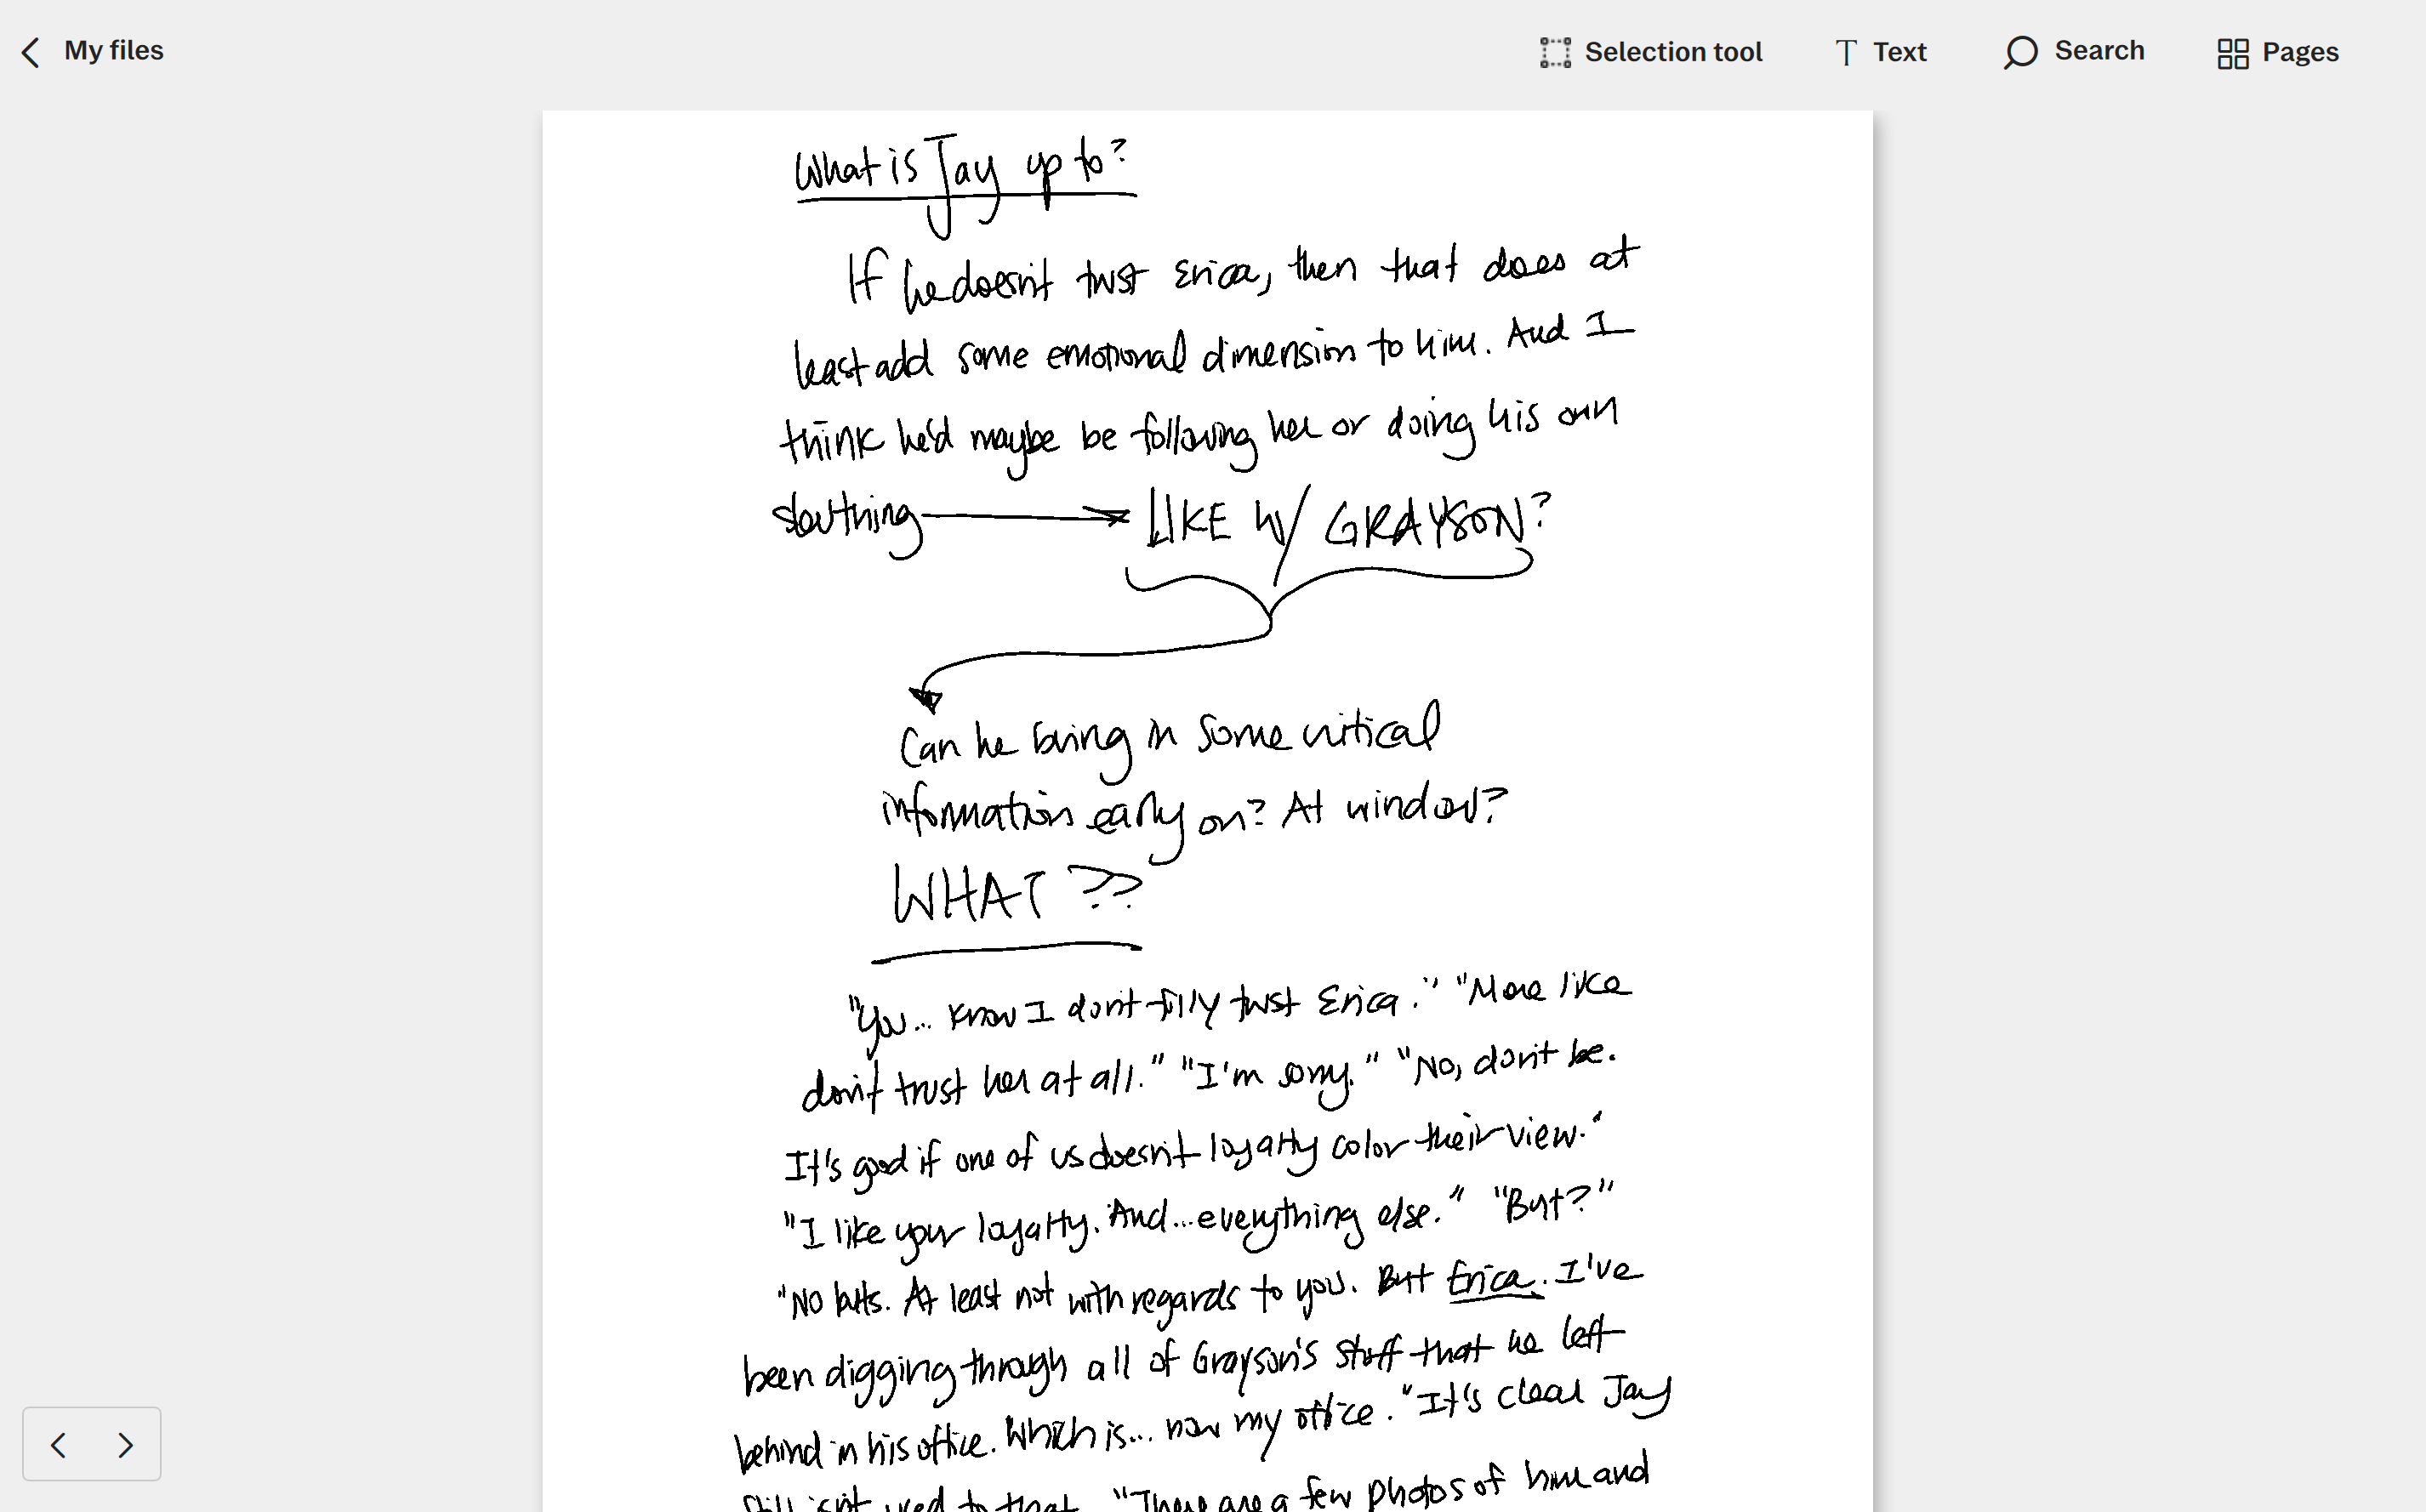 My files
Selection tool
Text
Search
Pages
What is Jay up to?
If he doesn't trust Erica, then that does at
least add some emotional dimension to him. And I
think he'd maybe be following her or doing his own
sleuthing → LIKE W/ GRAYSON?
Can he bring in some critical
information early on? At window?
WHAT??
"You... know I don't fully trust Erica." "More like
don't trust her at all." "I'm sorry." "No, don't be.
It's good if one of us doesn't loyalty color their view."
"I like your loyalty. And...everything else." "But?"
"No buts. At least not with regards to you. But Erica. I've
been digging through all of Grayson's stuff that he left
behind in his office. Which is... now my office." It's clear Jay
still isn't used to that. "There are a few photos of him and